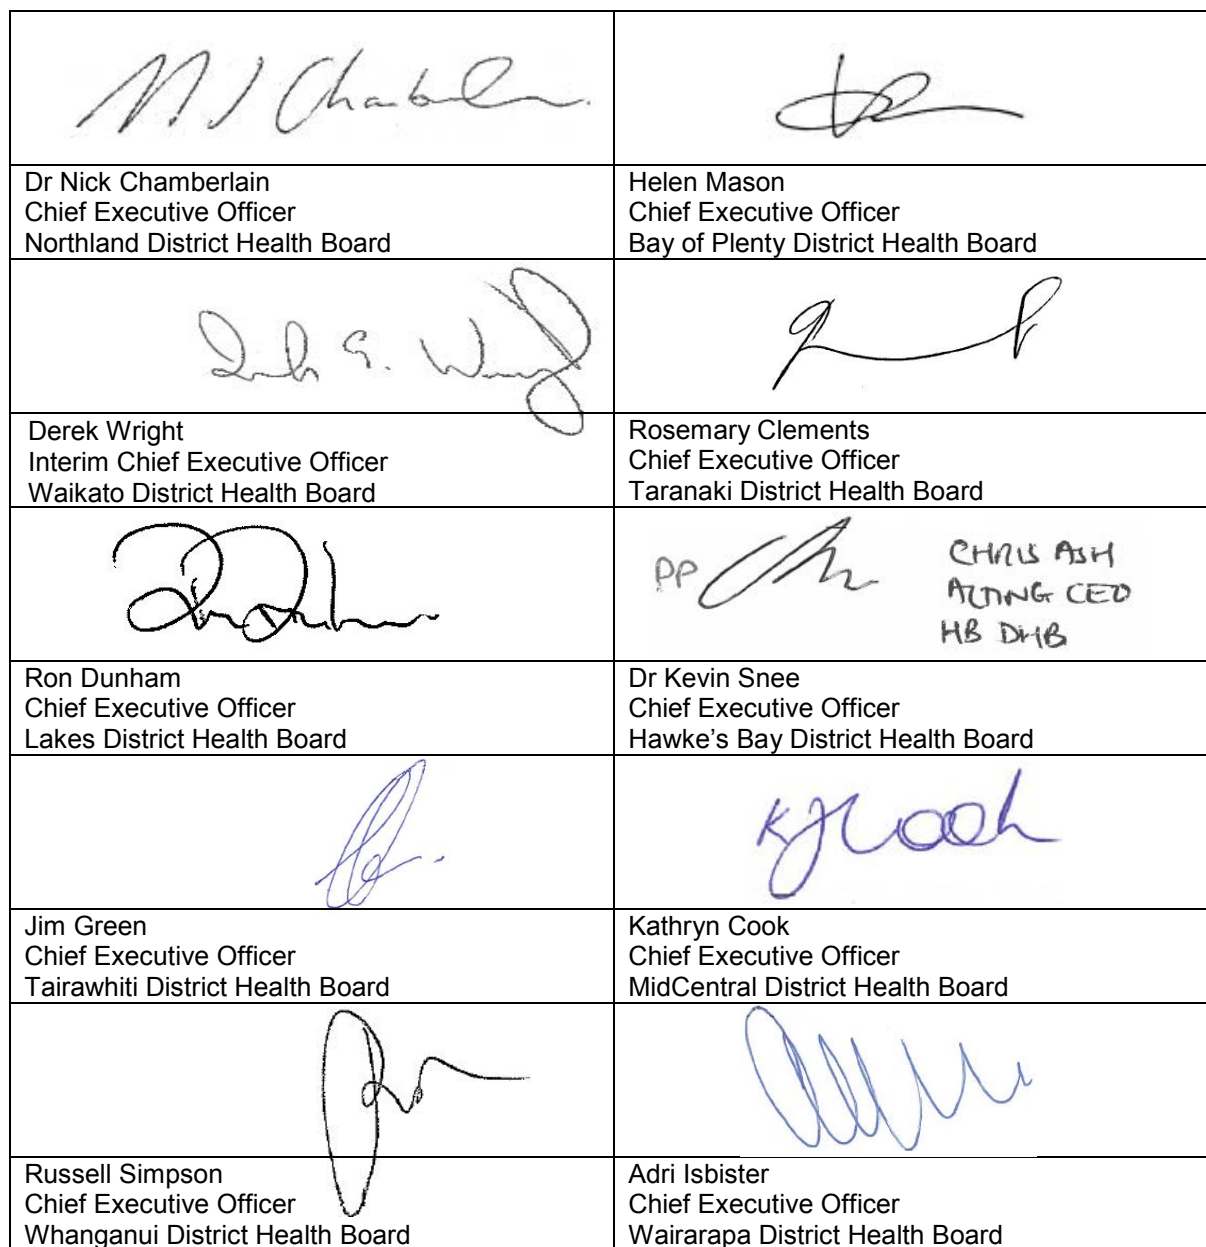 N J Chamberlain
Dr Nick Chamberlain
Chief Executive Officer
Northland District Health Board
Helen Mason
Chief Executive Officer
Bay of Plenty District Health Board
Derek Wright
Interim Chief Executive Officer
Waikato District Health Board
Rosemary Clements
Chief Executive Officer
Taranaki District Health Board
Ron Dunham
Chief Executive Officer
Lakes District Health Board
PP
CHRIS ASH
ACTING CEO
HB DHB
Dr Kevin Snee
Chief Executive Officer
Hawke’s Bay District Health Board
Jim Green
Chief Executive Officer
Tairawhiti District Health Board
KJ Cook
Kathryn Cook
Chief Executive Officer
MidCentral District Health Board
Russell Simpson
Chief Executive Officer
Whanganui District Health Board
Adri Isbister
Chief Executive Officer
Wairarapa District Health Board